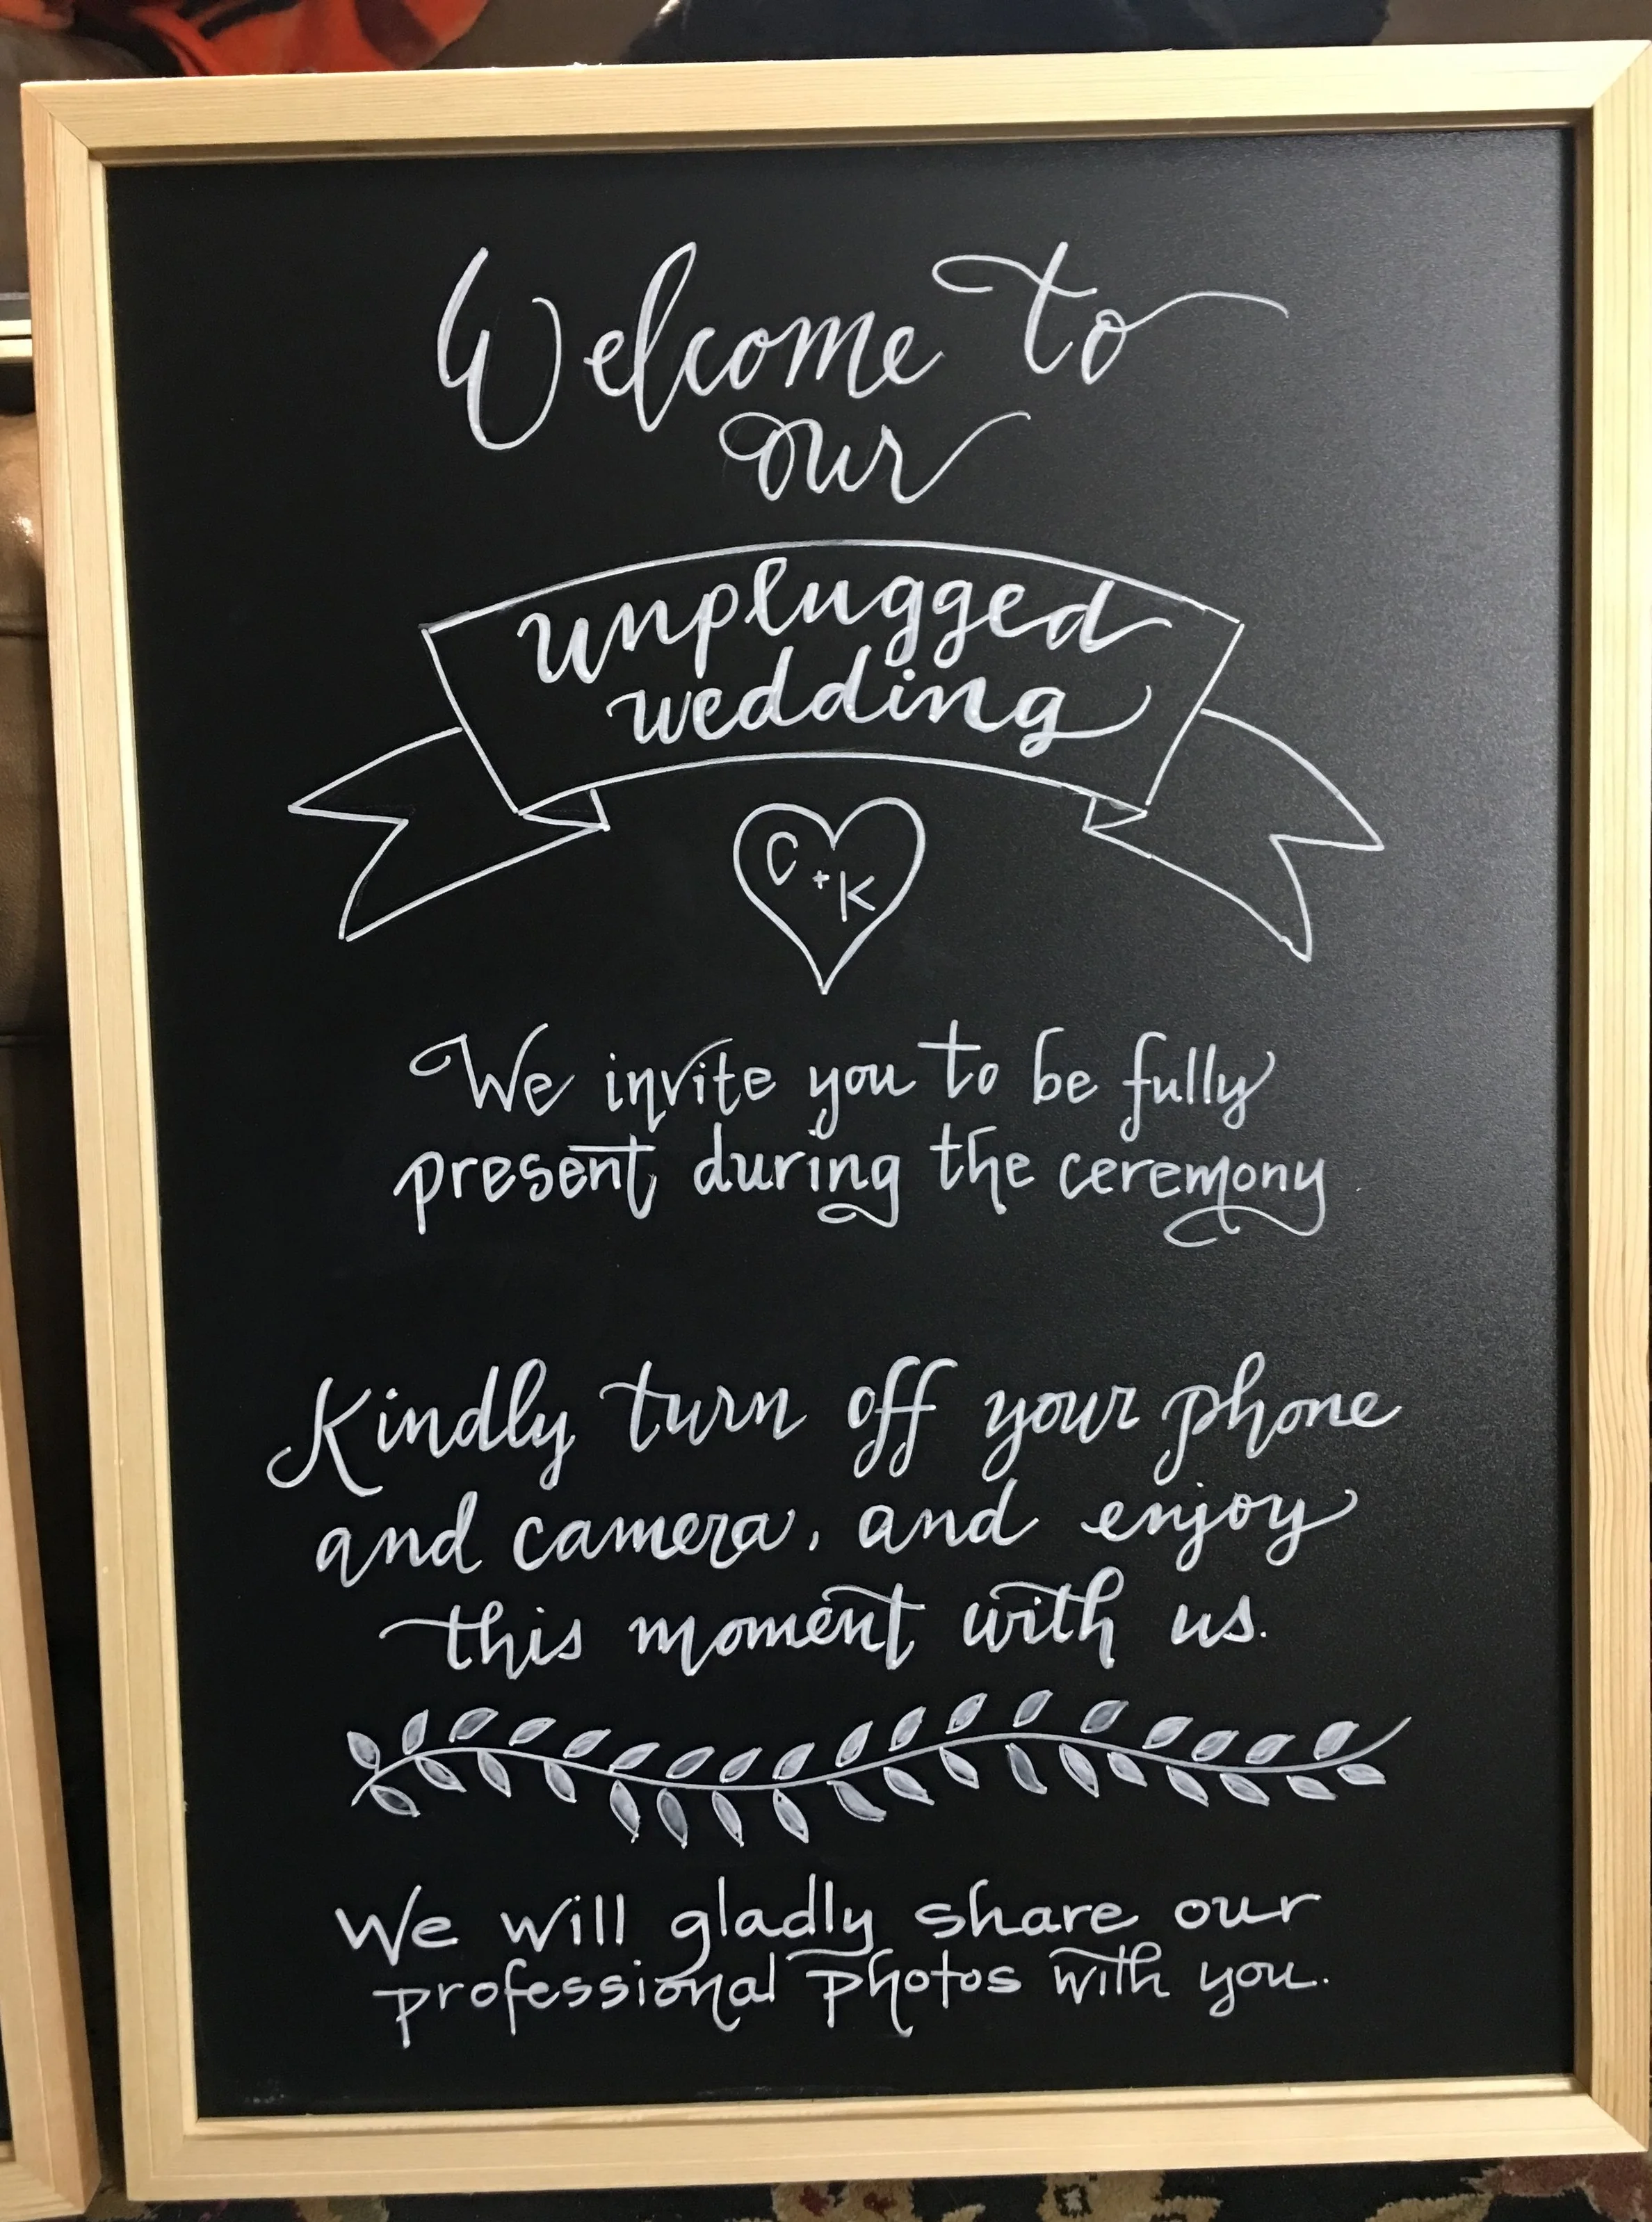 Welcome to
our
unplugged
wedding
C + K
We invite you to be fully
present during the ceremony
Kindly turn off your phone
and camera, and enjoy
this moment with us.
We will gladly share our
professional photos with you.